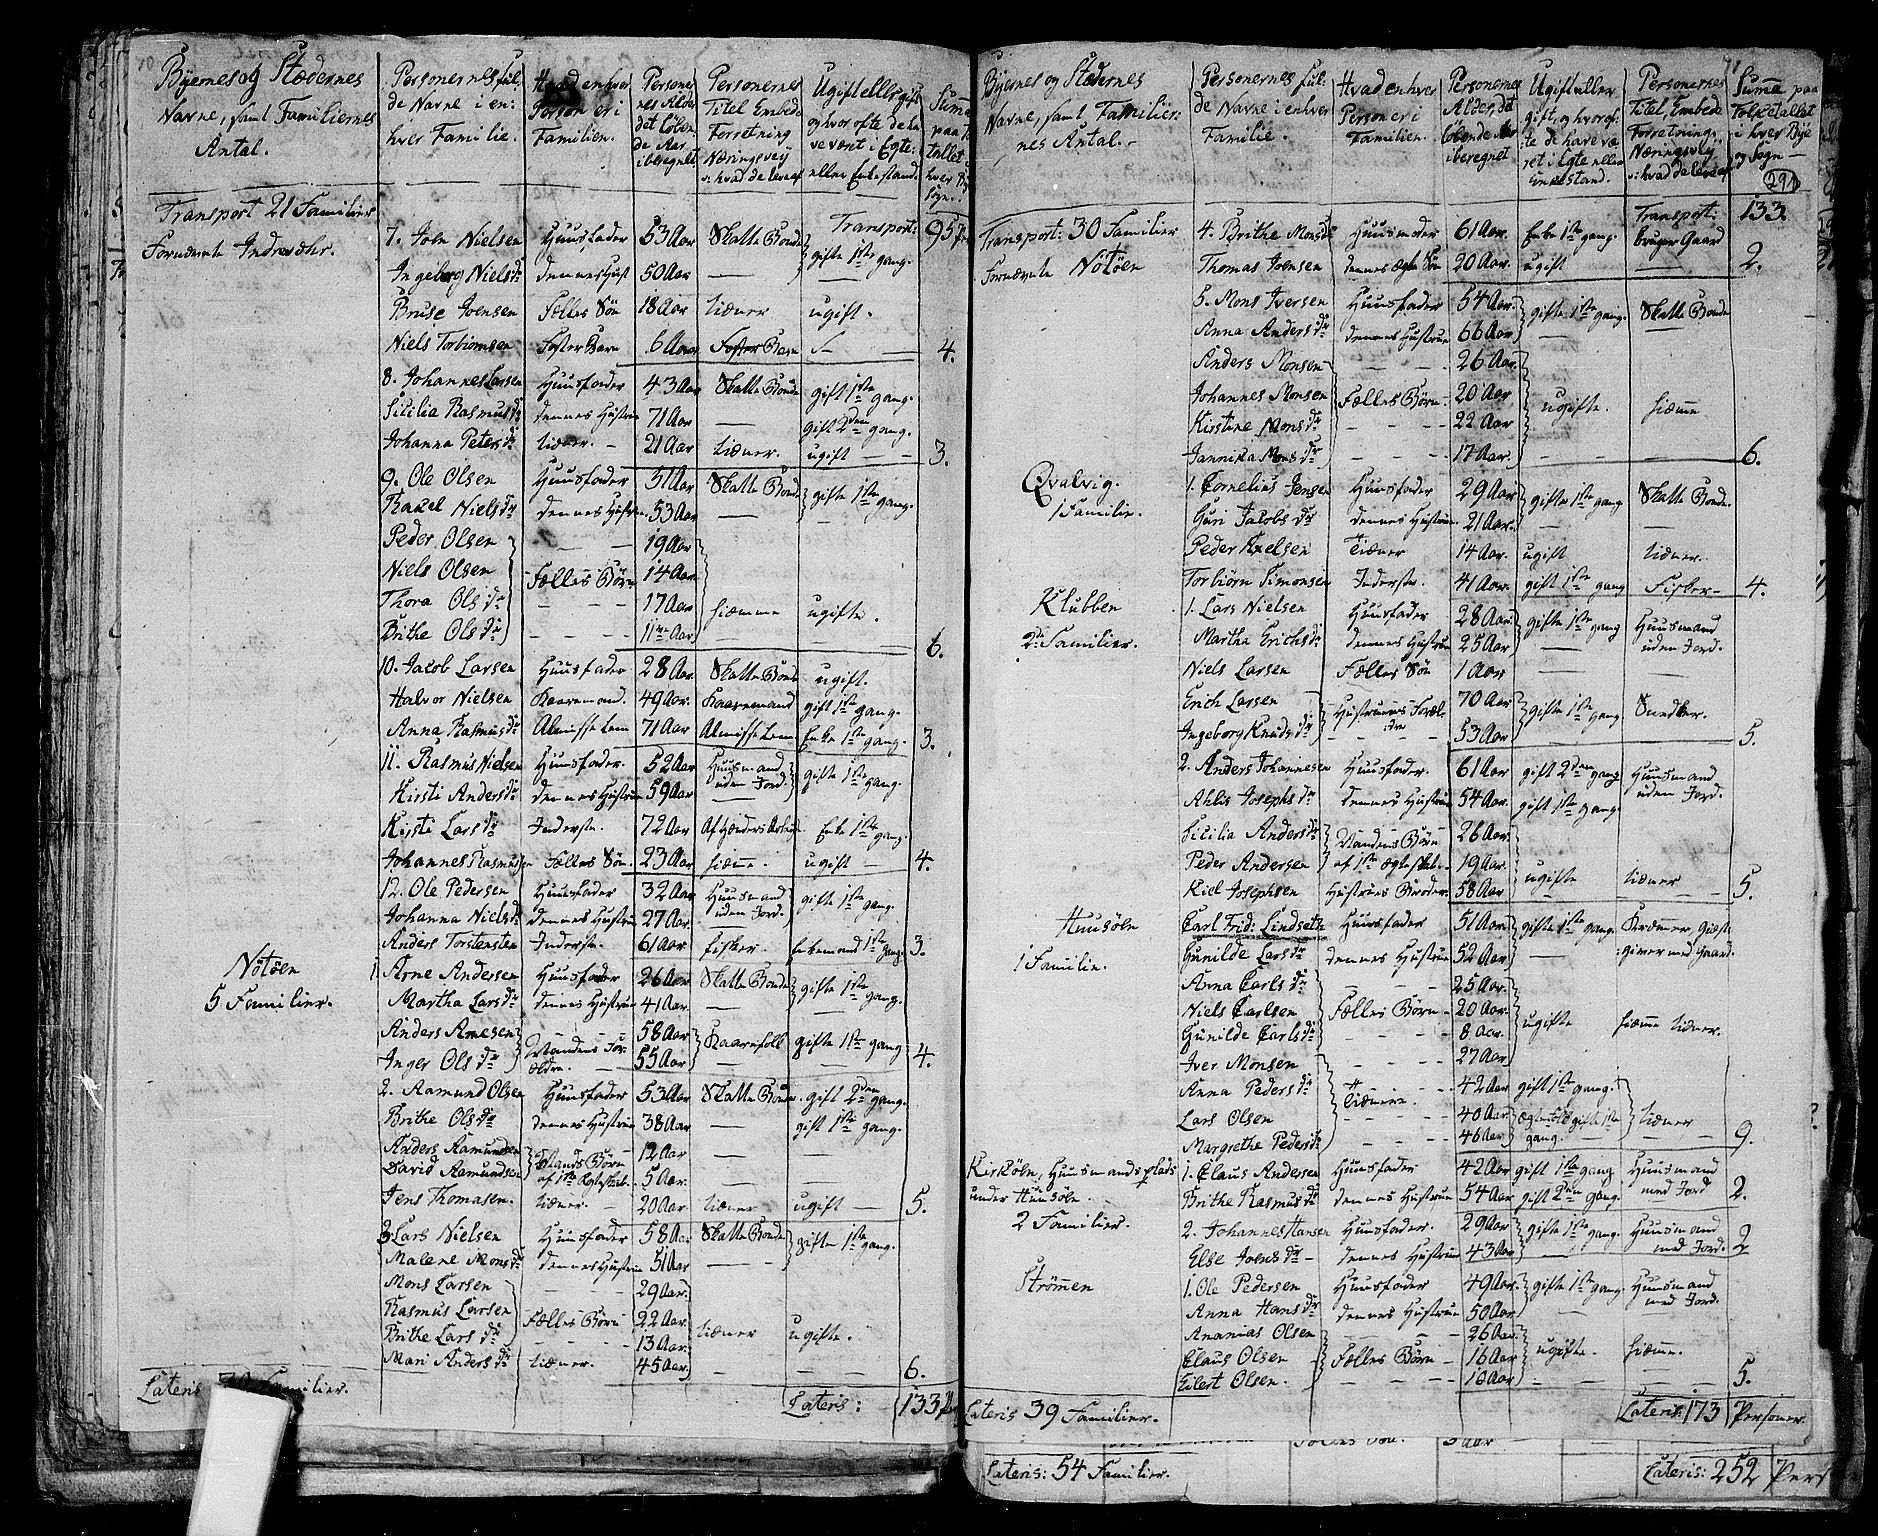 Byernes og Stædernes Navne, samt Familiernes Antal.
Personernes fulde Navne i enhver Familie.
Hvad enhver Person er i Familien.
Personernes Alder, det løbende Aar iberegnet
Personernes Titel Embede Forretning Næringsvey
Ugift eller gift og hvor ofte de have været i Egte- eller Enkestand.
Transport 21 Familier
Transport: 95
Fornævnte Indresøhr.
7. Joen Nielsen Huusfader 53 Aar Skatte Bonde gifte 1ste gang.
Ingeborg Nielsdr dennes Hust 50 Aar
Bruse Joensen Fælles Søn 18 Aar tiener ugift.
Niels Torbiornsen Foster Barn 6 Aar Foster Barn 4.
8. Johannes Larsen Huusfader 43 Aar Skatte Bonde gift 1ste gang.
Sicilia Rasmusdr dennes Hustrue 71 Aar gift 2den gang.
Johanna Petersdr tiener. 21 Aar tiener. ugift 3.
9. Ole Olsen Huusfader 51 Aar Skatte Bonde gifte 1ste gang.
Rakel Nielsdr dennes Hustr. 53 Aar
Peder Olsen 19 Aar
Niels Olsen Fælles Børn 14 Aar
Thora Olsdr 17 Aar hiemme ugifte.
Brithe Olsdr 11 Aar 6.
10. Jacob Larsen Huusfader 28 Aar Skatte Bonde ugift.
Halvor Nielsen Kaaremand. 49 Aar. Kaaremand gift 1ste gang.
Anna Rasmusdr Almisse Lem 71 Aar Almisse Lem Enke 1ste gang. 3.
11. Rasmus Nielsen Huusfader. 52 Aar Huusmand uden Jord. gifte 1ste gang.
Kirsti Andersdr dennes Hustrue 59 Aar
Kirsti Larsdr Inderste. 72 Aar Af Hænders Arbeide Enke 1ste gang.
Johannes Rasmusen Fælles Søn. 23 Aar hiemme. ugift 4.
12. Ole Pedersen Huusfader 32 Aar Huusmand uden Jord. gifte 1ste gang.
Johanna Nielsdr dennes Hustrue 27 Aar.
Anders Torstensen Inderste. 61 Aar fisker Enkemand 1ste gang. 3.
Nötöen
5 Familier.
1 Arne Andersen Huusfader 26 Aar Skatte Bonde gifte 1ste gang.
Martha Larsdr dennes Hustrue 41 Aar
Anders Arnesen 58 Aar Kaarefolk gifte 1ste gang
Inger Olsdr Mandens Forældre. 55 Aar. 4.
2. Aamund Olsen Huusfader 53 Aar Skatte Bonde. gift 2den gang.
Brithe Olsdr dennes Hustrue 38 Aar gift 1ste gang.
Anders Aamundsen Mands Børn af 1ste Egteskab. 12 Aar
David Aamundsen 5 Aar
Jens Thomasen. tiener. 20 Aar tiener ugift 5.
3. Lars Nielsen Huusfader 58 Aar Skatte Bonde gifte 1ste gang.
Malene Monsdr dennes Hustrue 51 Aar
Mons Larsen 29 Aar.
Rasmus Larsen Fælles Børn 22 Aar.
Brithe Larsdr 13 Aar tiener ugifte.
Mari Andersdr tiener. 45 Aar. 6.
Lateris Familier.
Lateris: 133
Byernes og Stædernes Navne, samt Familiernes Antal.
Personernes fulde Navne i enhver Familie.
Hvad enhver Person er i Familien.
Personernes Alder, det løbende Aar iberegnet
Ugift eller gift, og hvor ofte de have været i Egte eller Enkestand.
Personernes Titel, Embede Forretning, Næringsvey
Summa paa Folketallet i hver Bye og Sogn
291
Transport: 30 Familier
Transport: 133.
Fornævnte Nötöen
4. Brithe Monsdr Huusmoder 61 Aar. Enke 1ste gang. bruger Gaard
Thomas Joensen dennes Ægte Søn 20 Aar. ugift 2.
5. Mons Iversen Huusfader 54 Aar. gifte 1ste gang. Skatte Bonde
Anna Andersdr dennes Hustrue 66 Aar
Anders Monsen 26 Aar.
Johannes Monsen Fælles Børn 20 Aar ugifte. hiemme
Kirstine Monsdr 22 Aar
Jannika Monsdr 17 Aar. 6.
Qvalvig.
1 Familie.
1. Cornelius Jensen Huusfader 29 Aar gifte 1ste gang Skatte Bonde.
Guri Jacobsdr dennes Hustrue 21 Aar.
Peder Axelsen Tiæner 14 Aar. ugift tiener.
Torbiörn Simonsen Inderste. 41 Aar. gift 1ste gang Fisker 4.
Klubben
2de Familier.
1. Lars Nielsen Huusfader 28 Aar gifte 1ste gang Huusmand uden Jord.
Martha Erichsdr dennes Hustrue 25 Aar
Niels Larsen Fælles Søn 1 Aar
Erich Larsen Hustruens Forældre 70 Aar gifte 1ste gang
Ingeborg Knudsdr 53 Aar 5.
2. Anders Johannesen Huusfader. 61 Aar gift 2den gang Huusmand uden Jord.
Ahlis Josephsdr dennes Hustrue 54 Aar. gift 1ste gang.
Sicilia Andersdr Mandens Børn af 1ste Egteskab. 26 Aar.
Peder Andersen 19 Aar.
Kiel Josephsen Hustrues Broder. 58 Aar ugifte tiener 5.
Huusöen
1 Familie.
Carl Frid: Lindseth Huusfader 51 Aar gifte 1ste gang. Kræmer, Gæstgiver med Gaard.
Gunilde Larsdr dennes Hustrue 52 Aar
Anna Carlsdr 25 Aar.
Niels Carlsen Fælles Børn 20 Aar
Gunilde Carlsdr 8 aar. ugifte hiemme tiener.
Iver Monsen 27 Aar
Anna Pedersdr Tienere. 42 Aar gift 1ste gang.
Lars Olsen 40 Aar gift 1ste gang. tiener
Margrethe Pedersdr 46 Aar 9.
Kirköen, Huusmands plads under Huusöen.
2 Familier.
1. Claus Andersen Huusfader 42 Aar gift 1ste gang Huusmand med Jord
Brithe Rasmusdr dennes Hustrue 54 Aar. gift 2den gang. 2.
2. Johannes Hansen Huusfader. 29 Aar gifte 1ste gang. Huusmand med Jord.
Else Joensdr dennes Hustrue 43 Aar 2
Strömen
1. Ole Pedersen Huusfader 49 Aar gifte 1ste gang. Huusmand med Jord.
Anna Hansdr dennes Hustrue 50 Aar
Ananias Olsen 26 Aar.
Claus Olsen Fælles Børn 16 Aar ugifte. hiemme.
Eilert Olsen. 10 Aar. 5.
Lateris 39 Familier.
Lateris: 173 Personer.
Lateris: 54 Familier.
Lateris: 252 Pers